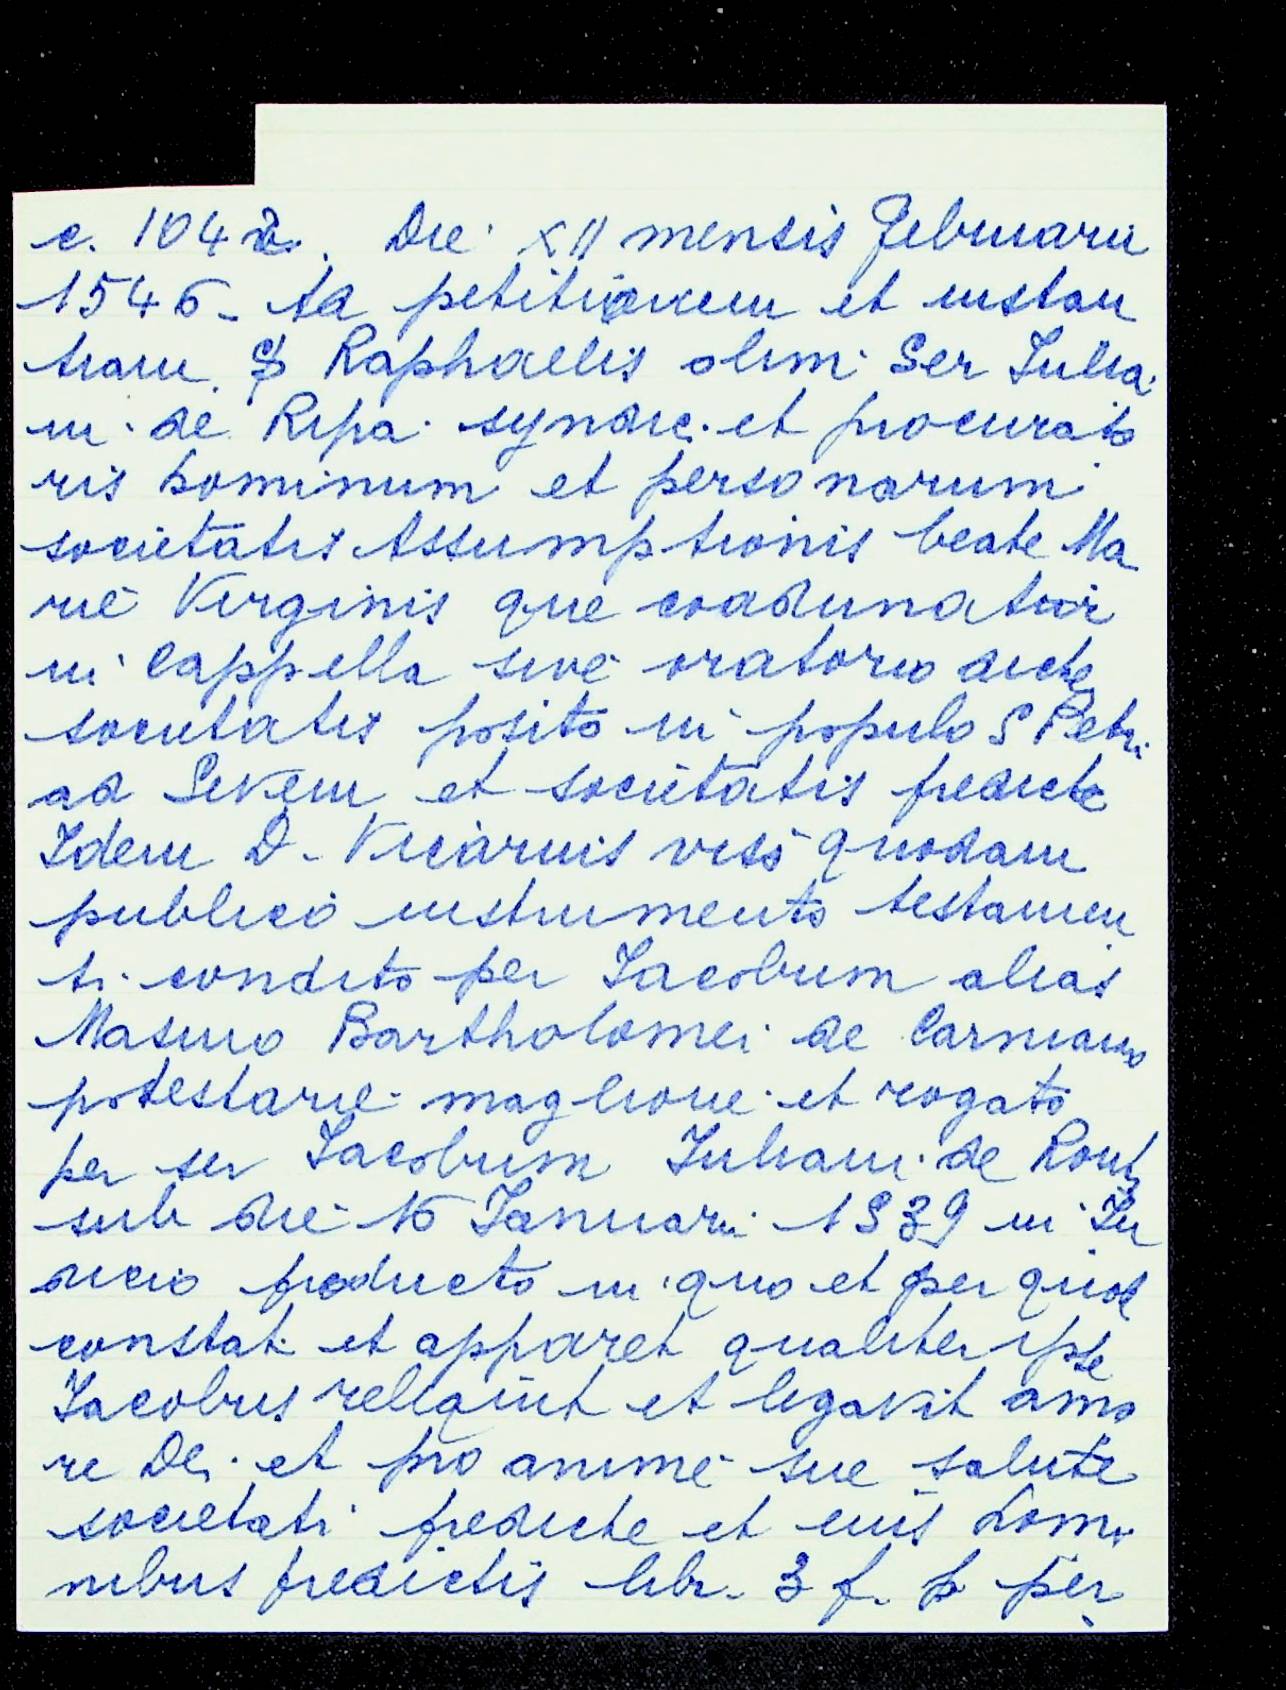 c. 104 v. Die XII mensis Februarii
1546 - Ad petitionem et instan
tiam S Raphaelis olim Ser Iulia
ni de Ripa syndic. et procurato
ris hominum et personarum
societatis Assumptionis beate Ma
rie Virginis que coadunatur
in Cappella sive oratorio dicte
societatis posito in populo S Petri
ad et societatis predicte
Idem D. Vicarius viso quodam
publico instrumento testamen
ti condito per Iacobum alias
Bartholomei de
potestarie et rogato
per ser Iacobum Iuliani de
sub die 16 Ianuari 1539 in Iu
dicio producto in quo et per quod
constat et apparet qualiter ipse
Iacobus reliquit et legavit amo
re Dei et pro anime sue salute
societati predicte et eius homi
nibus predictis libr. 3 f. p per